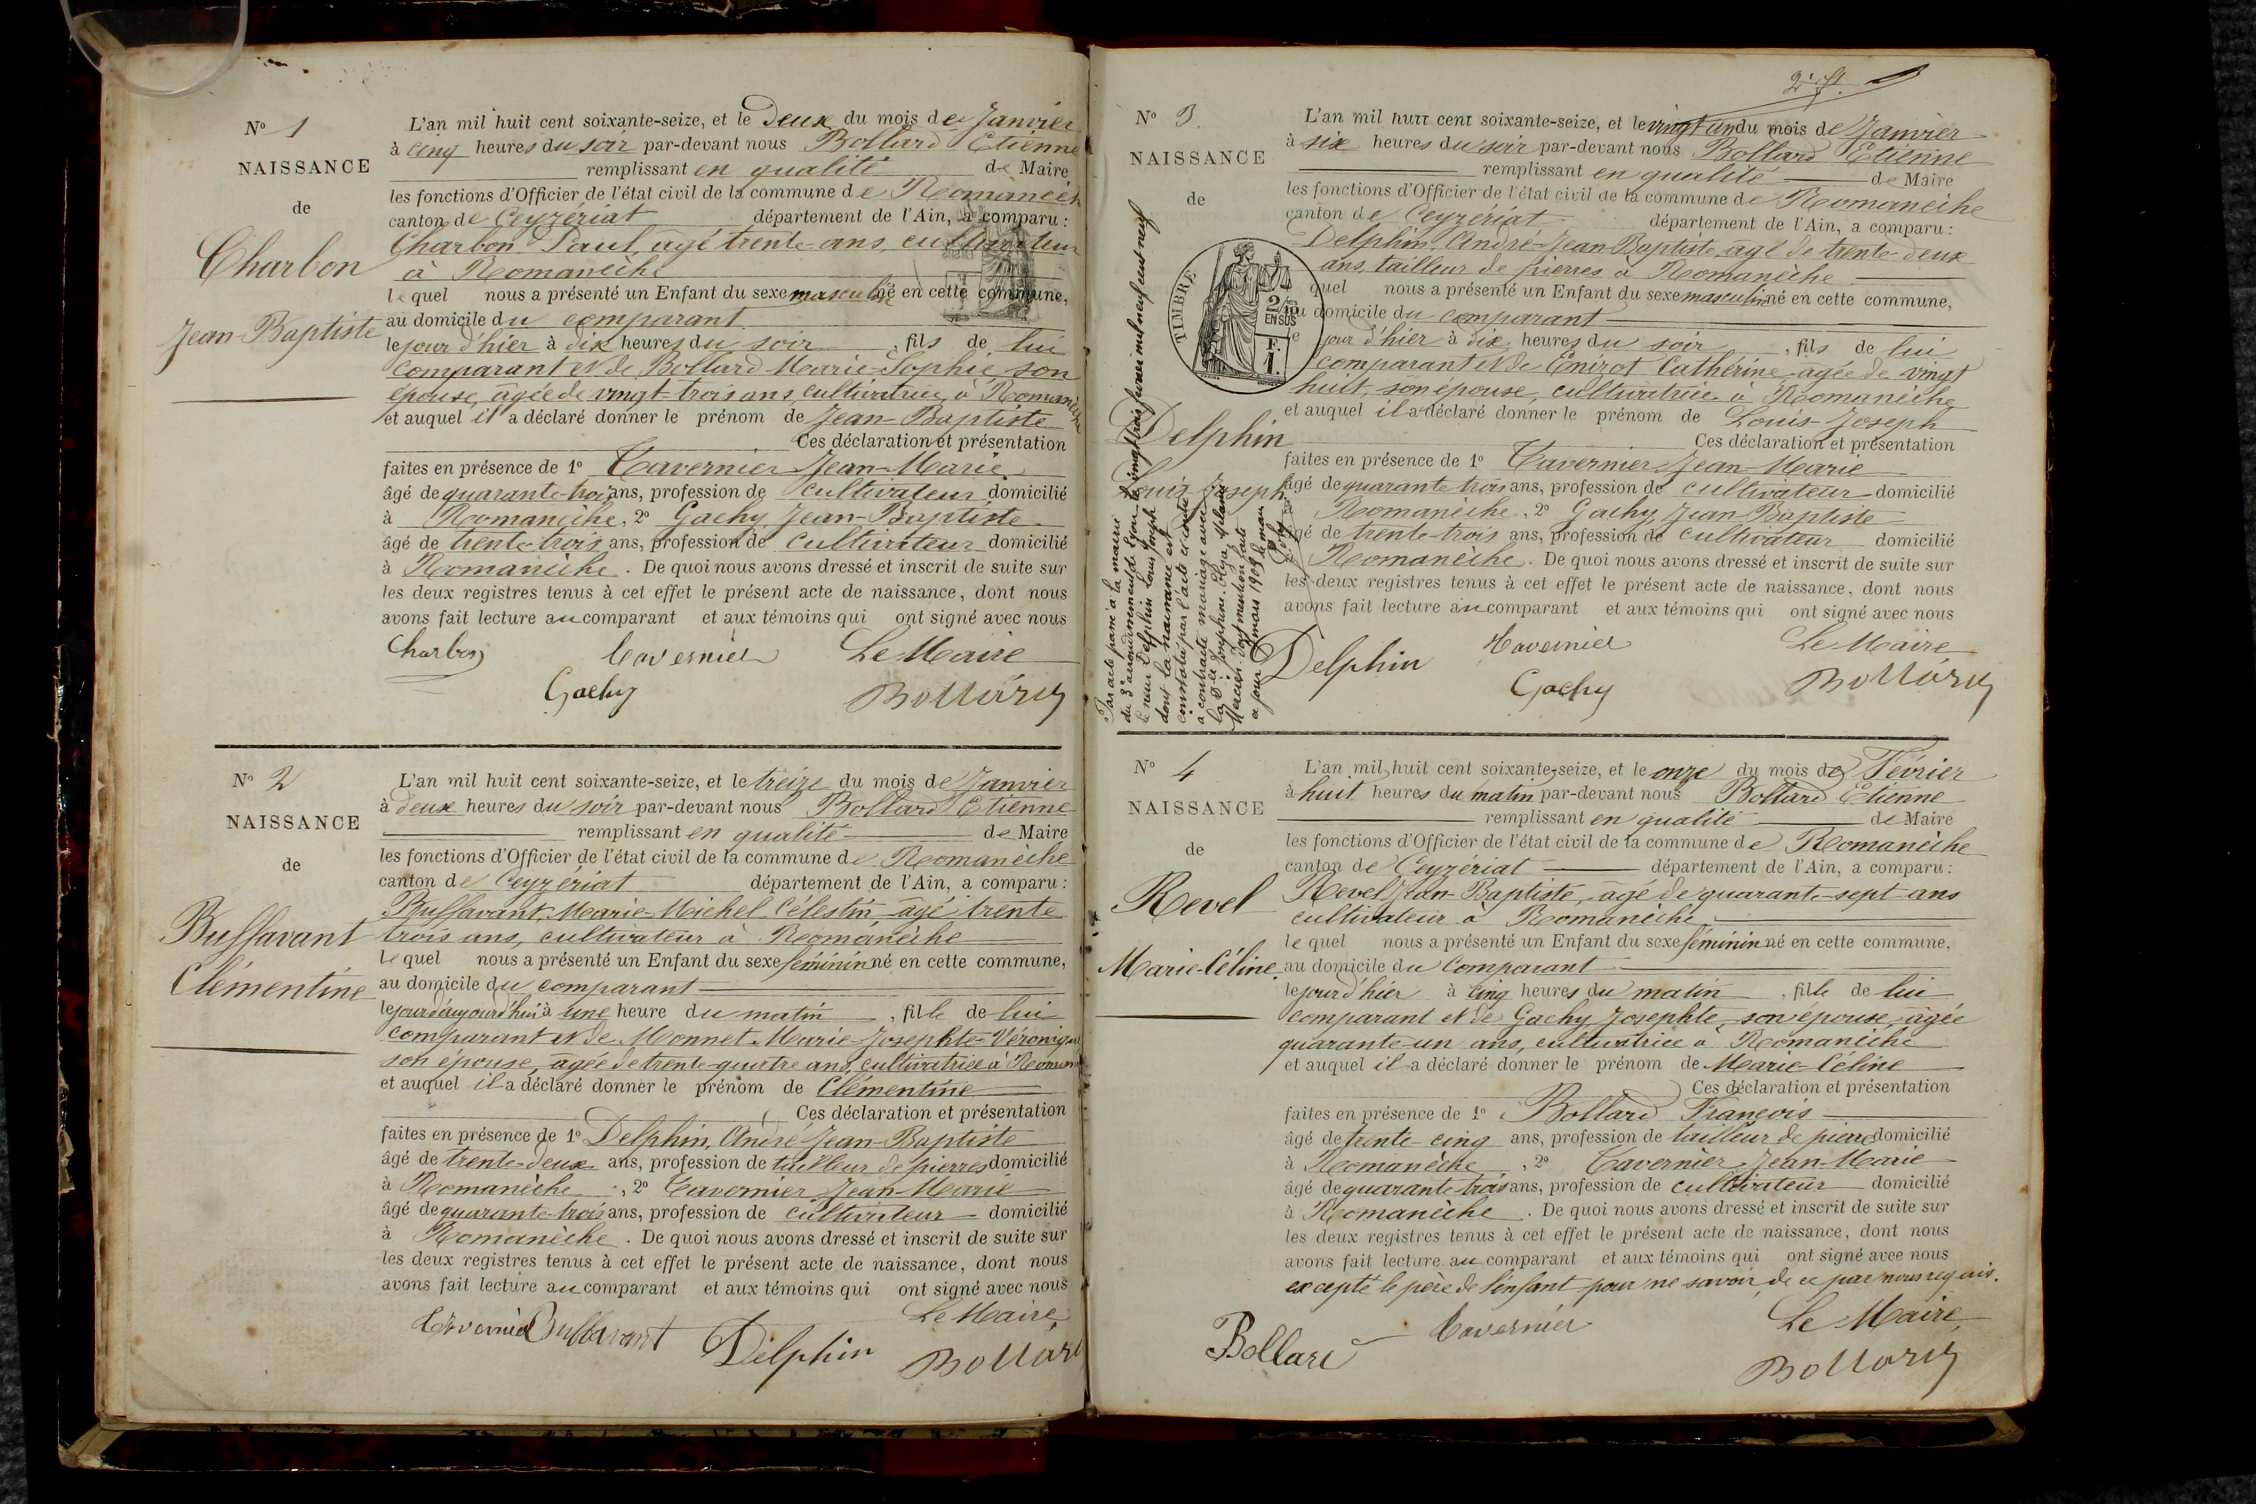 N° 1
NAISSANCE
de
Charbon
Jean-Baptiste
L'an mil huit cent soixante-seize, et le Deux du mois de Janvier
à cinq heures du soir par-devant nous Bollard Etienne
remplissant en qualité de Maire
les fonctions d'Officier de l'état civil de la commune de Romanèch
canton de Ceyzériat département de l'Ain, a comparu :
Charbon Paul, agé trente ans, cultivateur
à Romanèche
lequel nous a présenté un Enfant du sexe masculin né en cette commune,
au domicile du comparant
le jour d'hier à dix heures du soir, fils de lui
comparant et de Bollard Marie-Sophie, son
épouse, agée de vingt-trois ans, cultivatrice à Romanèche
et auquel il a déclaré donner le prénom de Jean-Baptiste
Ces déclaration et présentation
faites en présence de 1° Tavernier Jean-Marie
âgé de quarante-trois ans, profession de cultivateur domicilié
à Romanèche, 2° Gachy, Jean-Baptiste
âgé de trente-trois ans, profession de cultivateur domicilié
à Romanèche. De quoi nous avons dressé et inscrit de suite sur
les deux registres tenus à cet effet le présent acte de naissance, dont nous
avons fait lecture au comparant et aux témoins qui ont signé avec nous
Charbon Tavernier Le Maire
Gachy Bollard
N° 2
NAISSANCE
de
Buffavant
Clémentine
L'an mil huit cent soixante-seize, et le treize du mois de Janvier
à deux heures du soir par-devant nous Bollard Etienne
remplissant en qualité de Maire
les fonctions d'Officier de l'état civil de la commune de Romanèche
canton de Ceyzériat département de l'Ain, a comparu :
Buffavant Marie-Michel Célestin, agé trente
trois ans, cultivateur à Romanèche
lequel nous a présenté un Enfant du sexe féminin né en cette commune,
au domicile du comparant
le jour d'aujourd'hui à une heure du matin, fille de lui
comparant et de Monnet Marie Josephte-Véronique
son épouse, agée de trente-quatre ans, cultivatrice à Roman
et auquel il a déclaré donner le prénom de Clémentine
Ces déclaration et présentation
faites en présence de 1° Delphin, André Jean-Baptiste
âgé de trente-deux ans, profession de tailleur de pierres domicilié
à Romanèche, 2° Tavernier Jean-Marie
âgé de quarante-trois ans, profession de cultivateur domicilié
à Romanèche. De quoi nous avons dressé et inscrit de suite sur
les deux registres tenus à cet effet le présent acte de naissance, dont nous
avons fait lecture au comparant et aux témoins qui ont signé avec nous
Le Maire
Tavernier Buffavant Delphin Bollard
N° 3
NAISSANCE
de
TIMBRE
2/10
EN SUS
F.
1.
Delphin
Louis Joseph
Par acte passé à la mairie
du 3e arrondissement de Lyon le vingt trois février mil neuf cent neuf
le sieur Delphin Louis Joseph
dont la naissance est
constatée par l'acte ci contre
a contracté mariage avec
la Dlle Joséphine Olga Mélanie
Mercier. Dont mention faite
ce jour mars 1909 le maire
L'an mil huit cent soixante-seize, et le vingt un du mois de Janvier
à six heures du soir par-devant nous Bollard Etienne
remplissant en qualité de Maire
les fonctions d'Officier de l'état civil de la commune de Romanèche
canton de Ceyzériat département de l'Ain, a comparu :
Delphin, André-Jean-Baptiste, agé de trente-deux
ans, tailleur de pierres à Romanèche
quel nous a présenté un Enfant du sexe masculin né en cette commune,
au domicile du comparant
le jour d'hier à dix heures du soir, fils de lui
comparant et de Enizot Catherine, agée de vingt
huit, son épouse, cultivatrice à Romanèche
et auquel il a déclaré donner le prénom de Louis-Joseph
Ces déclaration et présentation
faites en présence de 1° Tavernier Jean-Marie
âgé de quarante trois ans, profession de cultivateur domicilié
Romanèche, 2° Gachy, Jean-Baptiste
âgé de trente-trois ans, profession de cultivateur domicilié
Romanèche. De quoi nous avons dressé et inscrit de suite sur
les deux registres tenus à cet effet le présent acte de naissance, dont nous
avons fait lecture au comparant et aux témoins qui ont signé avec nous
Delphin Tavernier Le Maire
Gachy Bollard
N° 4
NAISSANCE
de
Revel
Marie-Céline
L'an mil huit cent soixante-seize, et le onze du mois de Février
à huit heures du matin par-devant nous Bollard Etienne
remplissant en qualité de Maire
les fonctions d'Officier de l'état civil de la commune de Romanèche
canton de Ceyzériat département de l'Ain, a comparu :
Revel Jean-Baptiste, agé de quarante-sept ans
cultivateur à Romanèche
lequel nous a présenté un Enfant du sexe féminin né en cette commune,
au domicile du Comparant
le jour d'hier à cinq heures du matin, fille de lui
comparant et de Gachy Josephte, son épouse, agée
quarante-un ans, cultivatrice à Romanèche
et auquel il a déclaré donner le prénom de Marie-Céline
Ces déclaration et présentation
faites en présence de 1° Bollard François
âgé de trente-cinq ans, profession de tailleur de pierre domicilié
à Romanèche, 2° Tavernier Jean-Marie
âgé de quarante-trois ans, profession de cultivateur domicilié
à Romanèche. De quoi nous avons dressé et inscrit de suite sur
les deux registres tenus à cet effet le présent acte de naissance, dont nous
avons fait lecture au comparant et aux témoins qui ont signé avec nous
excepté le père de l'enfant pour ne savoir, de ce par nous requis.
Bollard Tavernier Le Maire
Bollard